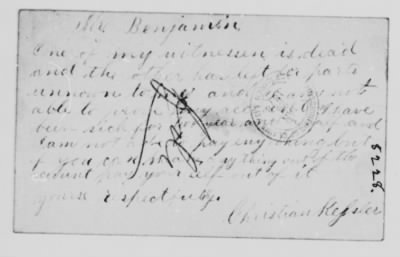 Mr. Benjamin
One of my witnessen is dead
and the other has left for parts
unnown to my and I am not
able to work any
been sick for and
I am not able to pay enything but
if you can make enything out of the
count pay your self out of it
yours respectfuly.
Christian Kessler
8228.